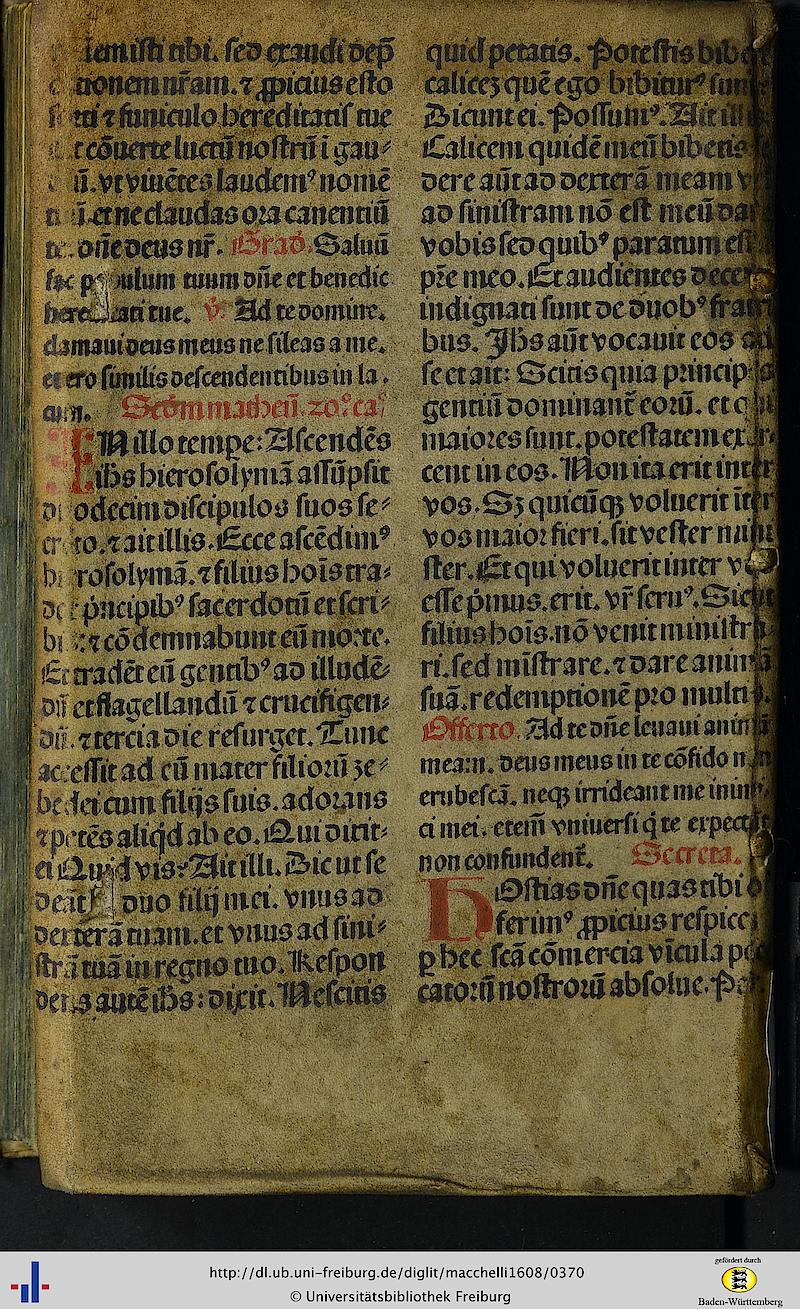 demisti tibi. sed exaudi dep̄
nr̄am. ⁊ ꝓpicius esto
⁊ funiculo hereditatis tue
cōuerte luctū nostrū ī gau⸗
vt viuētes laudemꝰ nomē
et ne claudas ora canentiū
te. dn̄e deus nr̄. Grad̄. Saluū
fac populum tuum dn̄e et benedic
tue. ℣. Ad te domine.
clamaui deus meus ne sileas a me.
et ero similis descendentibus in la.
cum. Scd̄m matheū. 20. ca.
IN illo tempe: Ascendēs
ihs hierosolymā assūpsit
duodecim discipulos suos se⸗
creto. ⁊ ait illis. Ecce ascēdimꝰ
hierosolymā. ⁊ filius hoīs tra⸗
det p̄ncipibꝰ sacerdotū et scri⸗
bis: ⁊ cōdemnabunt eū morte.
Et tradēt eū gentibꝰ ad illudē⸗
dū et flagellandū ⁊ crucifigen⸗
dū. ⁊ tercia die resurget. Tunc
accessit ad eū mater filiorū ze⸗
bedei cum filijs suis. adorans
⁊ petēs aliqd ab eo. Qui dixit⸗
ei Quid vis? Ait illi. Dic ut se
deāt duo filij mei. vnus ad
dexterā tuam. et vnus ad sini⸗
strā tuā in regno tuo. Respon
dens autē ihs: dixit. Nescitis
quid petatis. Potestis bibere
calicez quē ego bibiturꝰ sum
Dicunt ei. Possumꝰ. Ait illis
Calicem quidē meū bibetis
dere aūt ad dexterā meam v
ad sinistram nō est meū dare
vobis sed quibꝰ paratum est a
pr̄e meo. Et audientes decem
indignati sunt de duobꝰ fratri
bus. Ihs aūt vocauit eos ad
se et ait: Scitis quia principes
gentiū dominant̄ eorū. et qui
maiores sunt. potestatem exer
cent in eos. Non ita erit inter
vos. Sz quicūqꝫ voluerit īter
vos maior fieri. sit vester mini
ster. Et qui voluerit inter vos
esse p̄mus. erit. vr̄ seruꝰ. Sicut
filius hoīs. nō venit ministra
ri. sed mīstrare. ⁊ dare animā
suā. redemptionē pro multis.
Offerto. Ad te dn̄e leuaui animā
meam. deus meus in te cōfido non
erubescā. neqꝫ irrideant me inimi
ci mei. etem̄ vniuersi q̇ te expectāt
non confundent̄. Secreta.
HOstias dn̄e quas tibi o
ferimꝰ ꝓpicius respice:
ꝑ hec scā cōmercia vīcula pec
catorū nostrorū absolue. Per
http://dl.ub.uni-freiburg.de/diglit/macchelli1608/0370
© Universitätsbibliothek Freiburg
gefördert durch
Baden-Württemberg